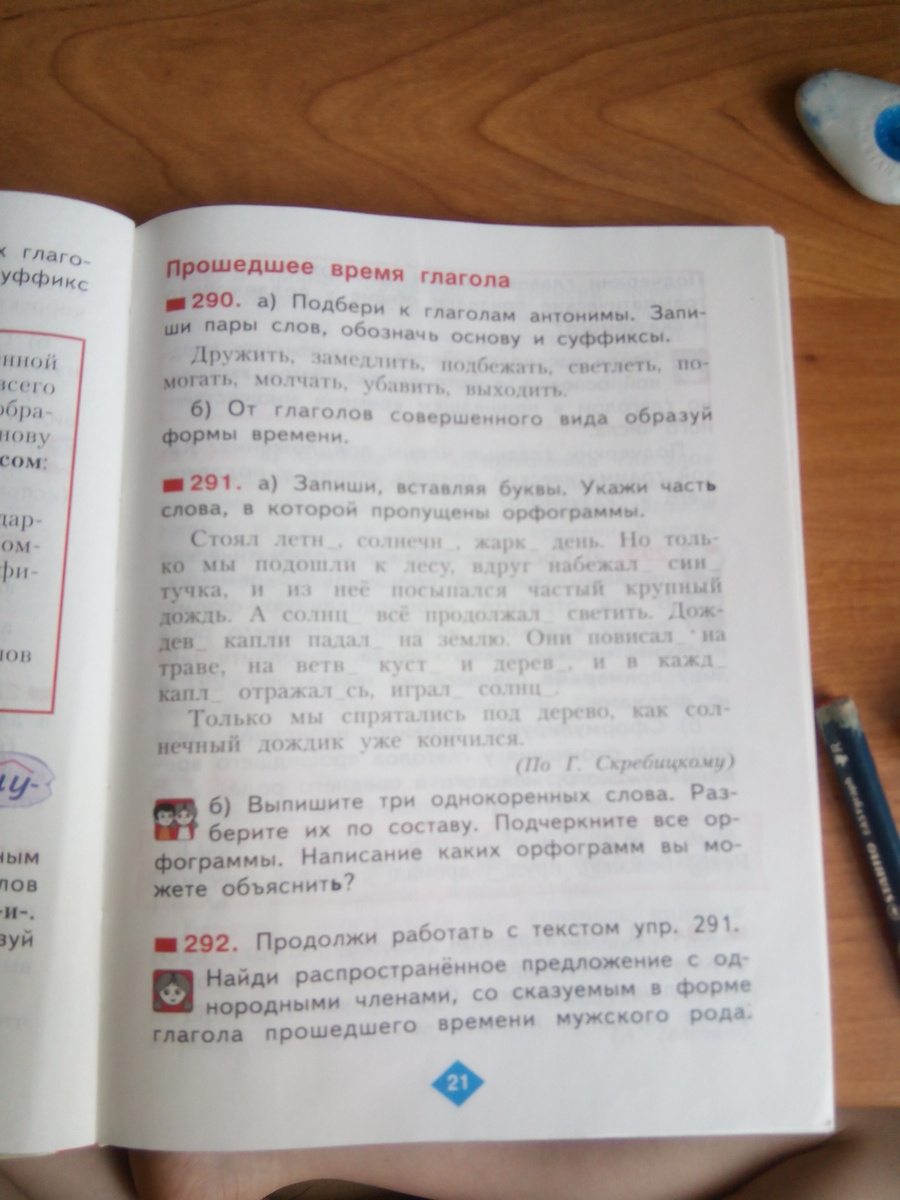 х глаго-
суффикс
енной
всего
обра-
нову
сом:
дар-
ом-
фи-
лов
му-
ным
лов
-и-.
зуй
Прошедшее время глагола
290. а) Подбери к глаголам антонимы. Запи-
ши пары слов, обозначь основу и суффиксы.
Дружить, замедлить, подбежать, светлеть, по-
могать, молчать, убавить, выходить.
б) От глаголов совершенного вида образуй
формы времени.
291. а) Запиши, вставляя буквы. Укажи часть
слова, в которой пропущены орфограммы.
Стоял летн_, солнечн_, жарк_ день. Но толь-
ко мы подошли к лесу, вдруг набежал_ син_
тучка, и из неё посыпался частый крупный
дождь. А солнц_ всё продолжал_ светить. Дож-
дев_ капли падал_ на землю. Они повисал_ на
траве, на ветв_ куст_ и дерев_, и в кажд_
капл_ отражал_сь, играл_ солнц_.
Только мы спрятались под дерево, как сол-
нечный дождик уже кончился.
(По Г. Скребицкому)
б) Выпишите три однокоренных слова. Раз-
берите их по составу. Подчеркните все ор-
фограммы. Написание каких орфограмм вы мо-
жете объяснить?
292. Продолжи работать с текстом упр. 291.
Найди распространённое предложение с од-
нородными членами, со сказуемым в форме
глагола прошедшего времени мужского рода.
21